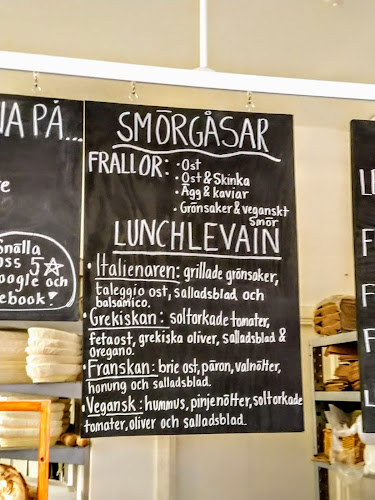 NA PÅ...
re
Snälla
oss 5☆
oogle och
ebook!
SMÖRGÅSAR
FRALLOR: • Ost
• Ost & Skinka
• Ägg & kaviar
• Grönsaker & veganskt
smör
LUNCHLEVAIN
• Italienaren: grillade grönsaker,
taleggio ost, salladsblad och
balsamico.
• Grekiskan: soltorkade tomater,
fetaost, grekiska oliver, salladsblad &
oregano.
• Franskan: brie ost, päron, valnötter,
honung och salladsblad.
• Vegansk: hummus, pinjenötter, soltorkade
tomater, oliver och salladsblad.